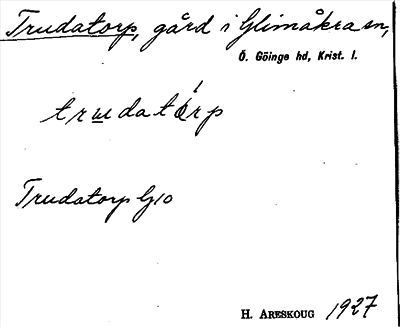 Trudatorp, gård i Glimåkra sn,
Ö. Göinge hd, Krist. l.
trudatórp
Trudatorp G10
H. ARESKOUG 1927